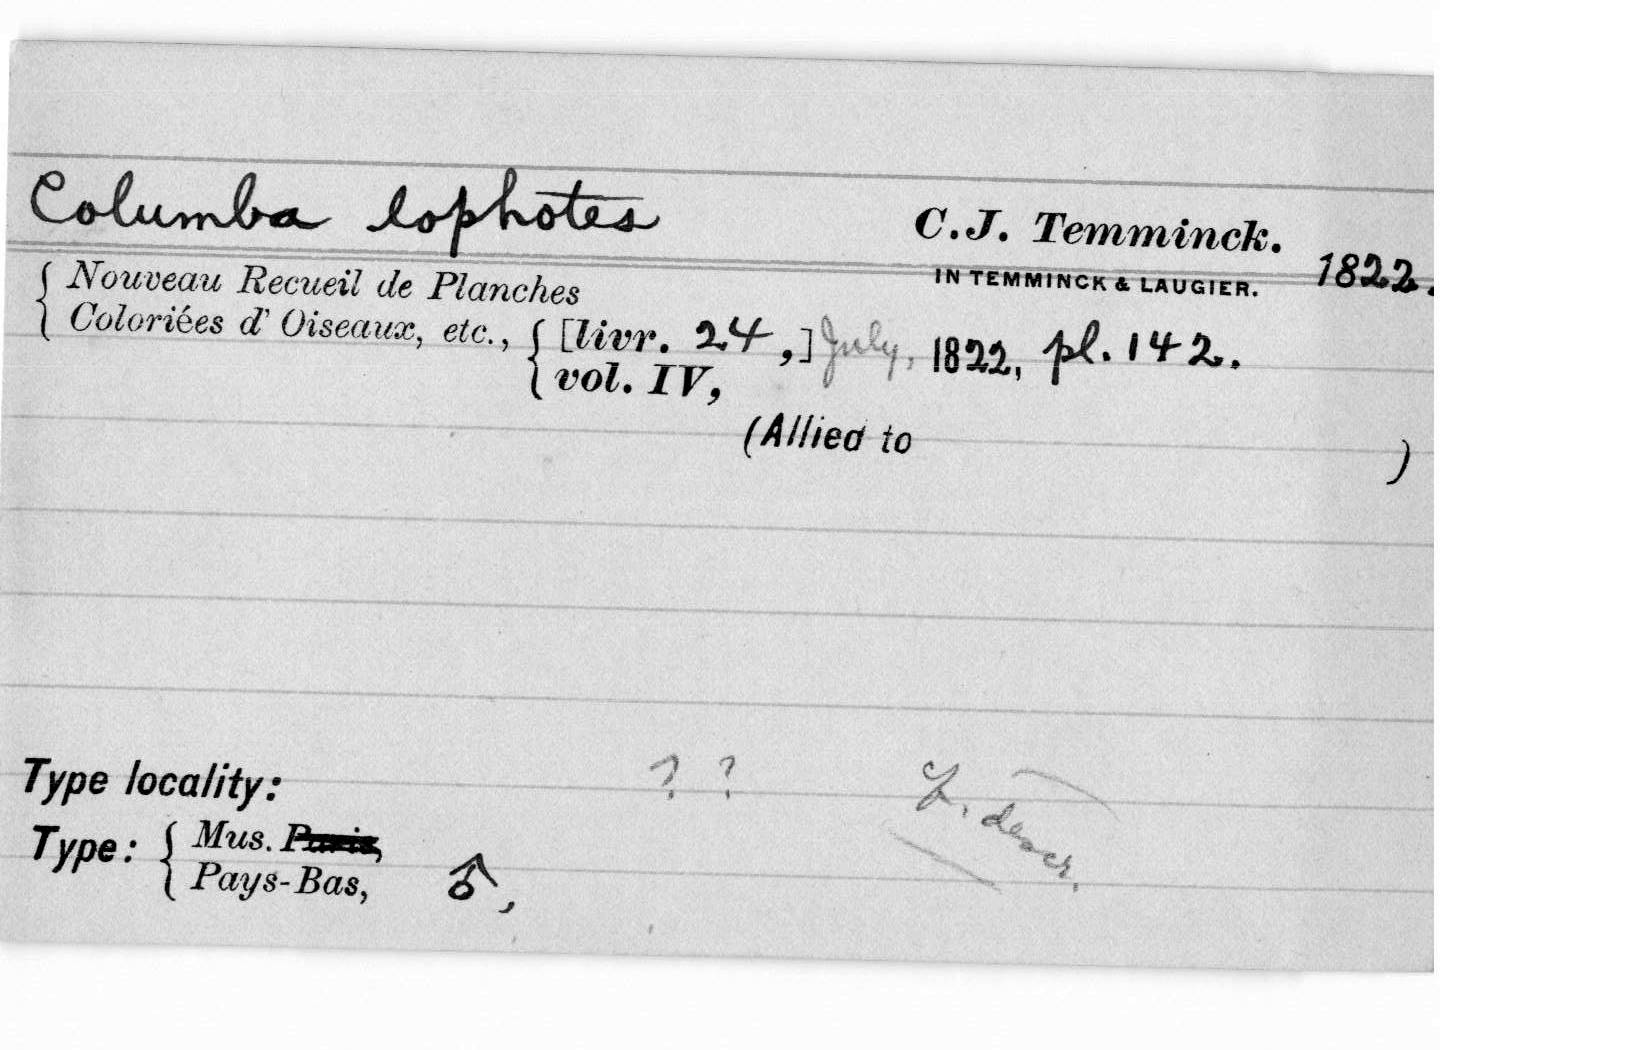 Columba lophotes C.J. Temminck.
IN TEMMINCK & LAUGIER. 1822.
{ Nouveau Recueil de Planches
Coloriées d' Oiseaux, etc., { [livr. 24,] July, 1822, pl. 142.
vol. IV,
(Allied to )
Type locality: ? ?
descr.
Type: { Mus. Paris,
Pays-Bas, ♂,